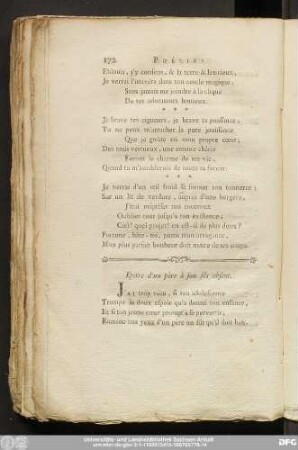 172 POÉSIES
Eblouis, s'y confient, & la terre & les cieux,
Je verrai l'univers dans ton cercle magique,
Sans jamais me joindre à la clique
De tes adorateurs honteux.
* * *
Je brave tes rigueurs, je brave ta puissance;
Tu ne peux m'arracher la pure jouissance
Que je goûte en mon propre cœur;
Des amis vertueux, une amante chérie
Feront le charme de ma vie,
Quand tu m'accablerois de toute ta fureur.
* * *
Je verrai d'un œil froid se former ton tonnerre;
Sur un lit de verdure, auprès d'une bergere,
J'irai mépriser ton courroux
Oublier tout jusqu'à ton existence;
Ciel! quel projet! en est-il de plus doux?
Fortune, hâte-toi, parts mon arrogance,
Mon plus parfait bonheur doit naître de tes coups.
Epitre d'un pere à son fils absent.
J'AI trop vécu, si ton adolescence
Trompe le doux espoir qu'a donné ton enfance,
Et si ton jeune cœur prompt à se pervertir,
Eloigne aux yeux d'un pere un fils qu'il doit haïr.
Universitäts- und Landesbibliothek Sachsen-Anhalt
DFG